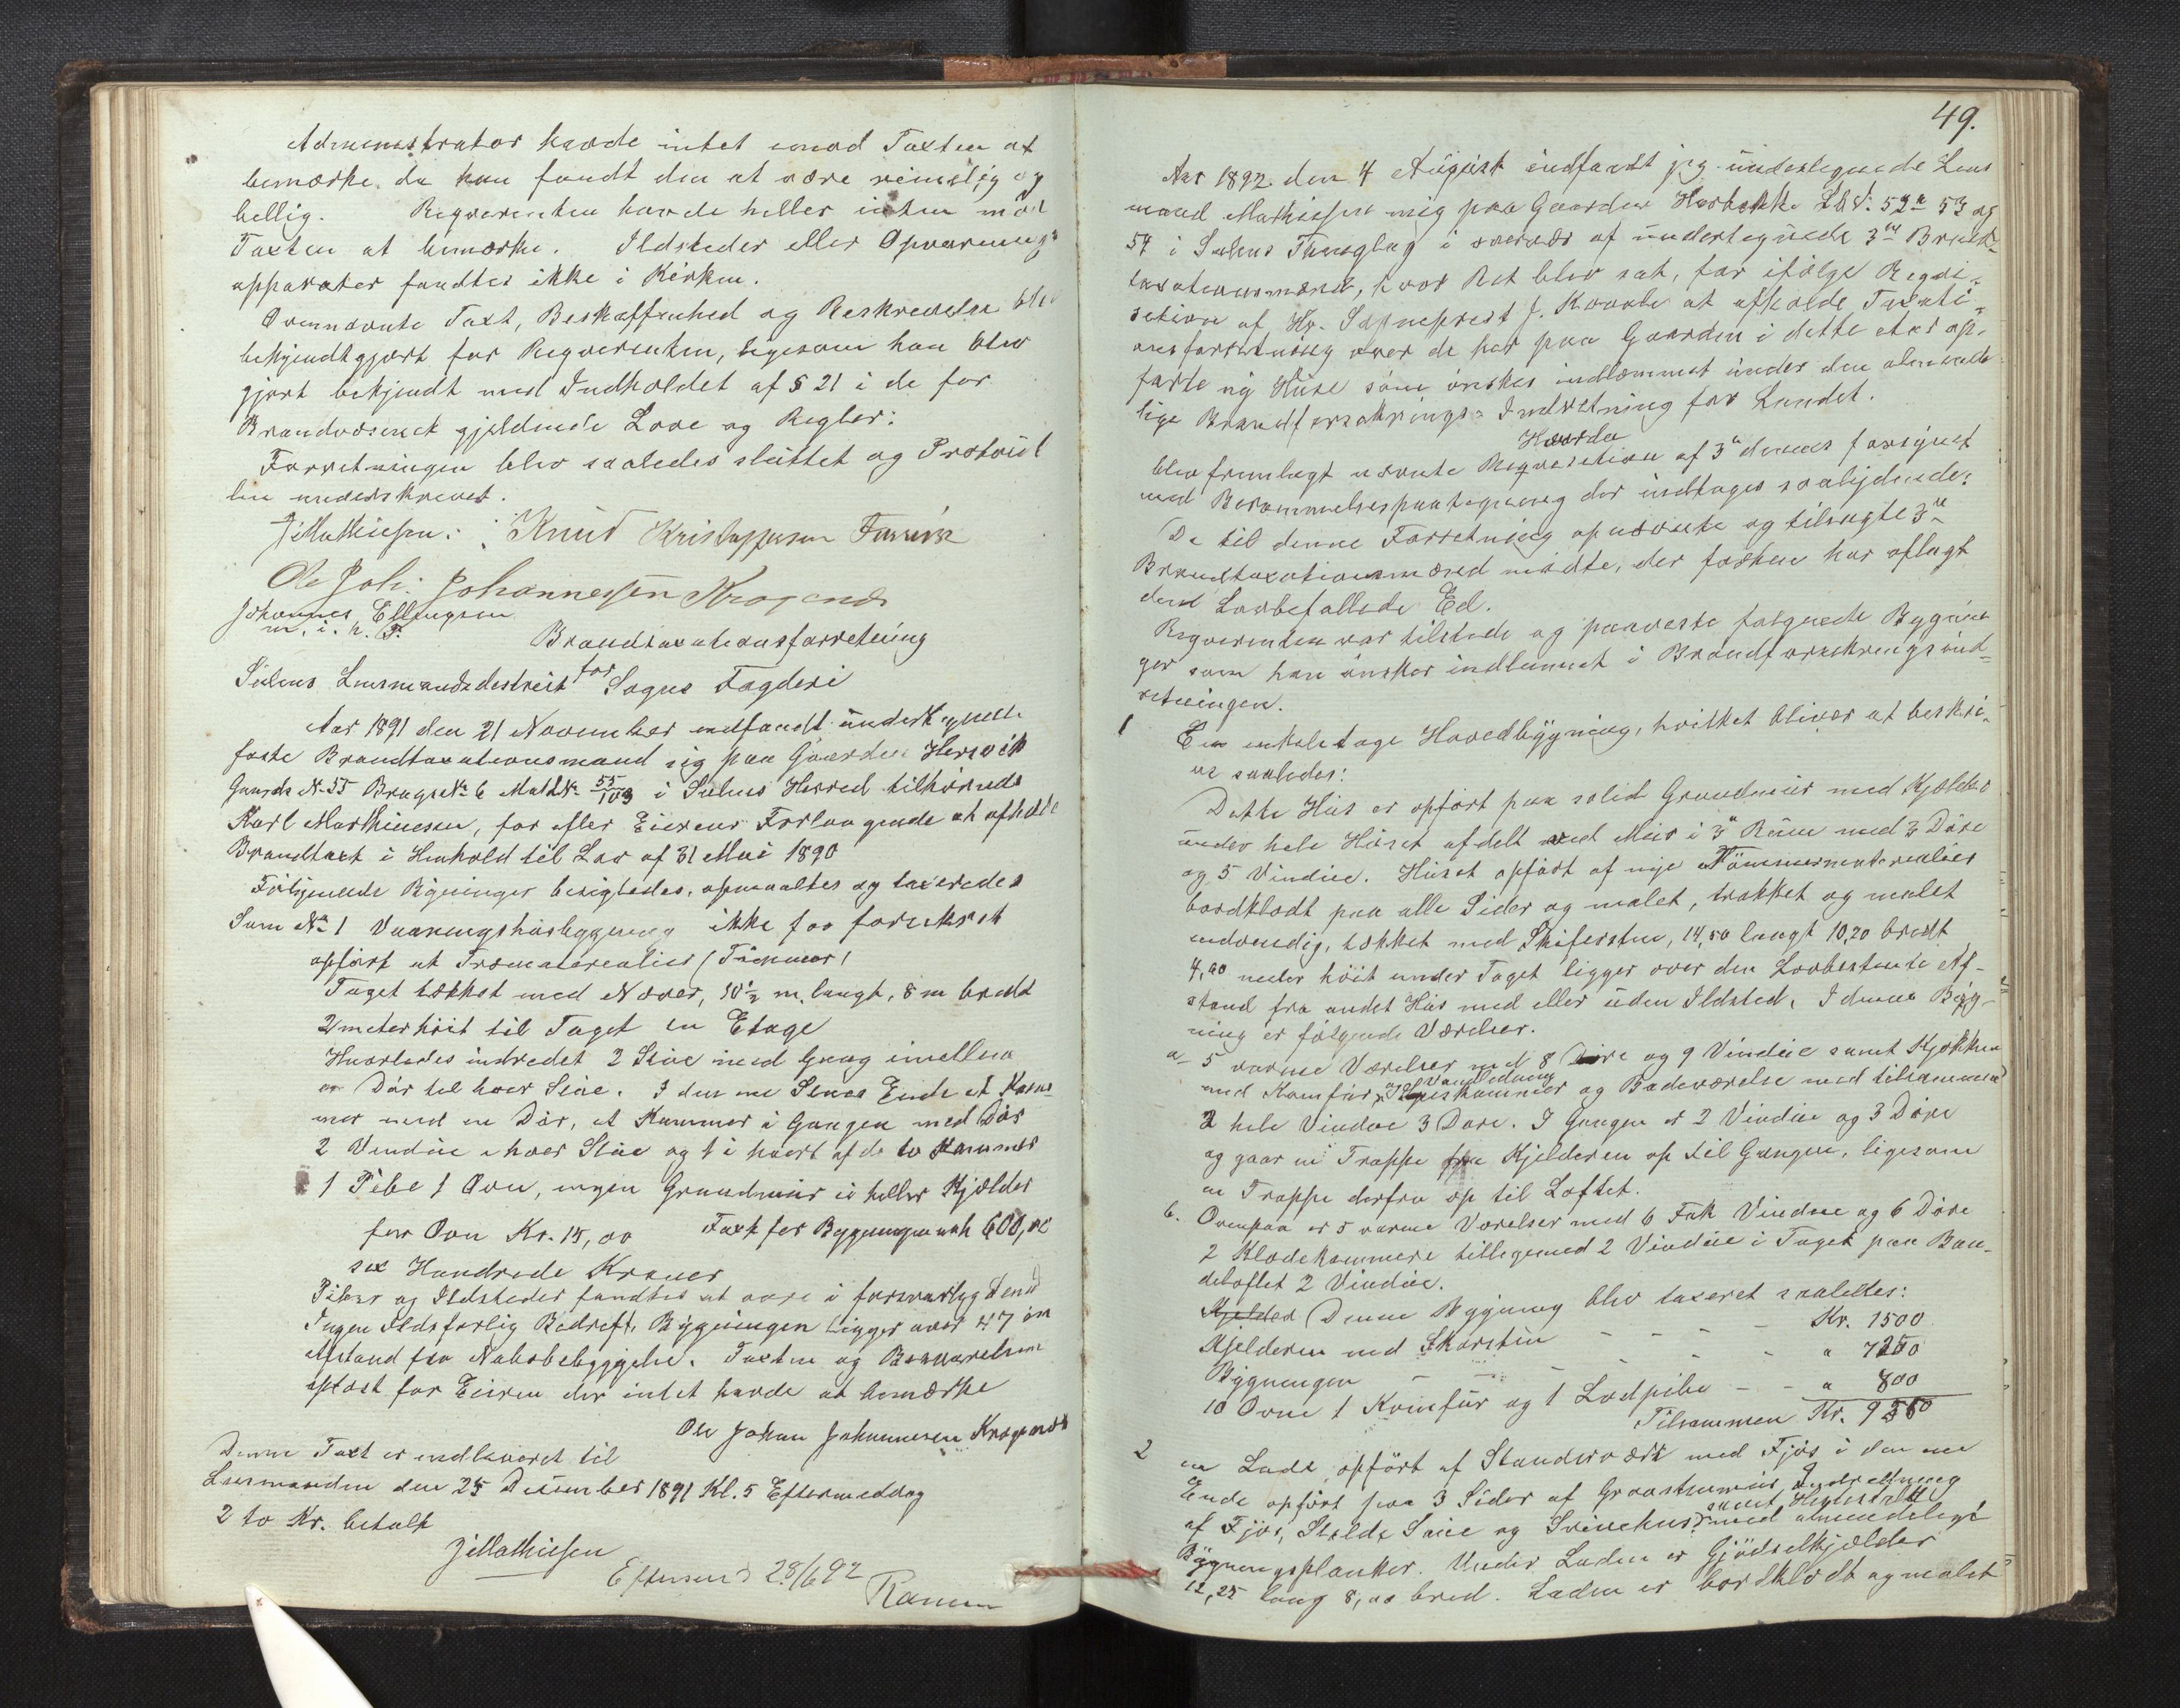 Administrator havde intet imod Taxten at
bemærke, da han fandt den at være rimelig og
billig. Reqvirenten havde heller inten mod
Taxten at bemærke. Ildsteder eller Opvarmnings
apparater fandtes ikke i Kirken.
Ovennævnte Taxt, Beskaffenhed og Beskrivelse blev
bekjendtgjort for Reqvirenten, ligesom han blev
gjort bekjendt med Indholdet af § 21 i de for
Brandvæsenet gjeldende Love og Regler:
Forretningen blev saaledes sluttet og Protocol
len underskrevet.
J. Mathiesen. Knud Kristoffersen
Ole Joh. Johannessen Kragenæs
Johannes Ellingsen
m. i. h. P.
Brandtaxationsforretning
for
Sulens Lensmandsdestrict Sogns Fogderi
Aar 1891 den 21 November indfandt undertegnede
faste Brandtaxationsmand sig paa Gaarden Hersvik
Gaards No 55 Brugs No 6 Matr No 55/103 i Sulens Herred tilhørende
Karl Marthinesen, for efter Eierens Forlangende at afholde
Brandtaxt i Henhold til Lov af 31 Mai 1890
Følgjende Bygninger besigtedes, opmaaltes og taxeredes
Som No 1 Vaaningshusbyggning ikke før forsikret
opført at Træmaterealier (Tømmer)
Taget tækket med Næver, 10½ m. langt, 8 m bredt
2 meter høit til Taget en Etage
Hvorledes indredet 2 Stue med Gang imellem
en Dør til hver Stue. I den ene Stues Ende et Kam
mer med en Dør, et Kammer i Gangen med Dør
2 Vendue i hver Stue og 1 i hvert af de to Kammer
1 Pibe 1 Ovn, ingen Grundmur ei heller Kjelder
for Ovn Kr. 15,00 Taxt for Bygningen 600,00
sex Hundrede Kroner
Piber og Ildsteder fandtes at være i forsvarlig Stand
Ingen Ildsfarlig Bedreft. Bygningen ligger over 47 m
Afstand fra Nabobebyggelse. Taxten og Beskrivelsen
oplæst for Eieren der intet havde at bemærke
Ole Johan Johannesen Kragenæs
Denne Taxt er indleveret til
Lensmanden den 25 Desember 1891 Kl. 5 Eftermeddag
2 to Kr. betalt
J. Mathiesen
Eftersend 28/6 92
49.
Aar 1892 den 4 August indfandt jeg undertegnede Lens
mand Mathiesen mig paa Gaarden Herbakke LNr. 52a 53 og
54 i Sulens Thinglag i overvær af undertegnede 3de Brand-
taxationsmænd, hvor Ret blev sat, for ifølge Reqvi-
sition af Hr. Sogneprest J. Kvaale at afholde Taxati-
onsforretning over de her paa Gaarden i dette Aar op-
førte ny Huse som ønskes indlemmet under den alminde
lige Brandforsikrings-Indretning for Landet.
Hvorda
blev fremlagt nævnte Reqvisition af 3die dennes forsynet
med Berammelsespaategning der indtages saalydende:
De til denne Forretning opnævnte og tilsagte 3de
Brandtaxationsmænd mødte, der forhen har aflagt
dend Lovbefallede Ed.
Reqvirenten var tilstede og paaviste følgende Bygnin
ger som han ønsker indlemmet i Brandforsikringsind-
retningen.
1 Em enkeletage Hovedbygning, hvilket bliver at beskri-
ve saaledes:
Dette Hus er opført paa solid Grundmur med Kjelder
under hele Huset afdelt ved Mur i 3de Rum med 3 Døre
og 5 Vindue. Huset opført af nye Tømmermaterealier
bordklædt paa alle Sider og malet, trækket og malet
indvendig, tækket med Skifersten, 14,50 langt 10,20 bredt
4,90 meter høit under Taget ligger over den Lovbestemte Af-
stand fra andet Hus med eller uden Ildsted. I denne Byg-
ning er følgende Værelser.
a- 5 varme Værelser med 8 Døre og 9 Vindue samt Kjøkken
med Komfur, Vandledning Spiskammer og Badeværelse med tilsammen
2 hele Vindue 3 Døre. I Gangen er 2 Vindue og 3 Døre
og gaar en Trappe fra Kjelderen op til Gangen, ligesom
en Trappe derfra op til Loftet.
b. Ovenpaa er 5 varme Værelser med 6 Fak Vindue og 6 Døre
2 Klædekammere tilligemed 2 Vindue i Taget paa Bon-
deloftet 2 Vindue.
Kjelder (Denne Bygning blev taxeret saaledes:
Kjelderen med Skorsten - - - - Kr. 1500
Bygningen - - - - - " 7250
10 Ovne 1 Komfur og 1 Lodpibe - - " 800
Tilsammen Kr. 9550
2 en Lade opført af Standerværk med Fjøs i den ene
Ende opført paa 3 Sider af Graastensmur, Indretning
af Fjøs, Stalde Svie og Svinehus, samt Hestestald med almindelige
Bygningsplanker. Under Laden er Gjødselkjelder
12,25 lang 8,00 bred. Laden er bordklædt og malet